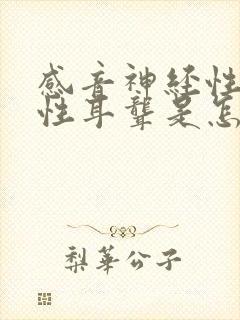 感音神经性
性耳聋是怎
梨华公子